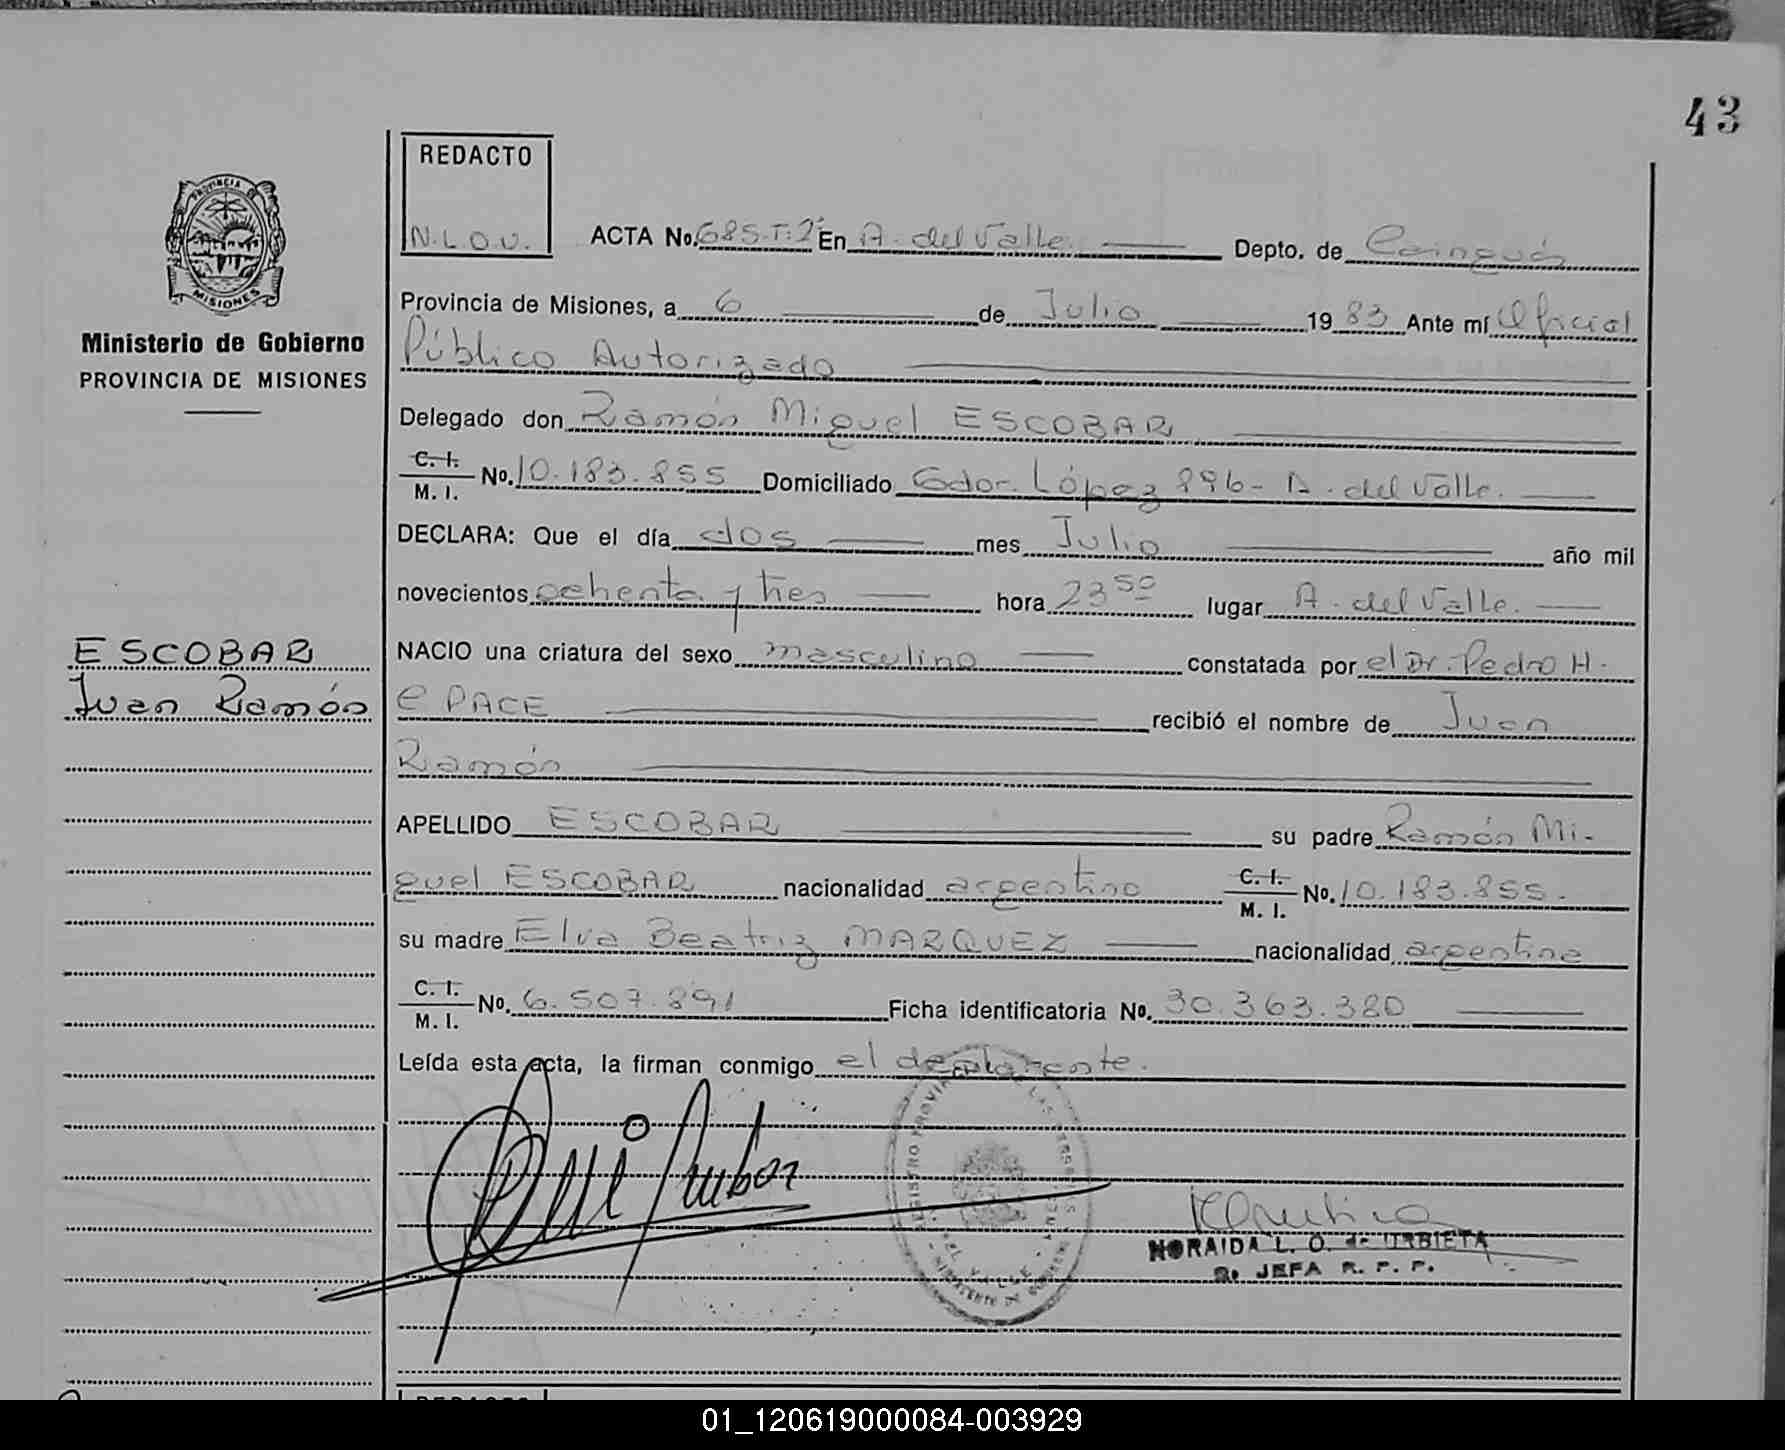 43
REDACTO
N.L.O.U.
PROVINCIA DE
MISIONES
Ministerio de Gobierno
PROVINCIA DE MISIONES
ACTA No. 685-T:2º En A. del Valle. Depto. de Cainguás
Provincia de Misiones, a 6 de Julio 1983 Ante mí Oficial
Público Autorizado
Delegado don Ramón Miguel ESCOBAR
C. I. M. I. No. 10.183.855 Domiciliado Gdor. López 896- A. del Valle.
DECLARA: Que el día dos mes Julio año mil
novecientos ochenta y tres hora 23 50 lugar A. del Valle.
ESCOBAR
Juan Ramón
NACIO una criatura del sexo masculino constatada por el Dr. Pedro H.
e PACE recibió el nombre de Juan
Ramón
APELLIDO ESCOBAR su padre Ramón Mi-
guel ESCOBAR nacionalidad argentino C. I. M. I. No. 10.183.855.
su madre Elva Beatriz MARQUEZ nacionalidad argentina
C. I. M. I. No. 6.507.891 Ficha identificatoria No. 30.363.380
Leída esta acta, la firman conmigo el declarante.
NORAIDA L. O. de URBIETA
JEFA R. P. P.
REDACTO
01_120619000084-003929